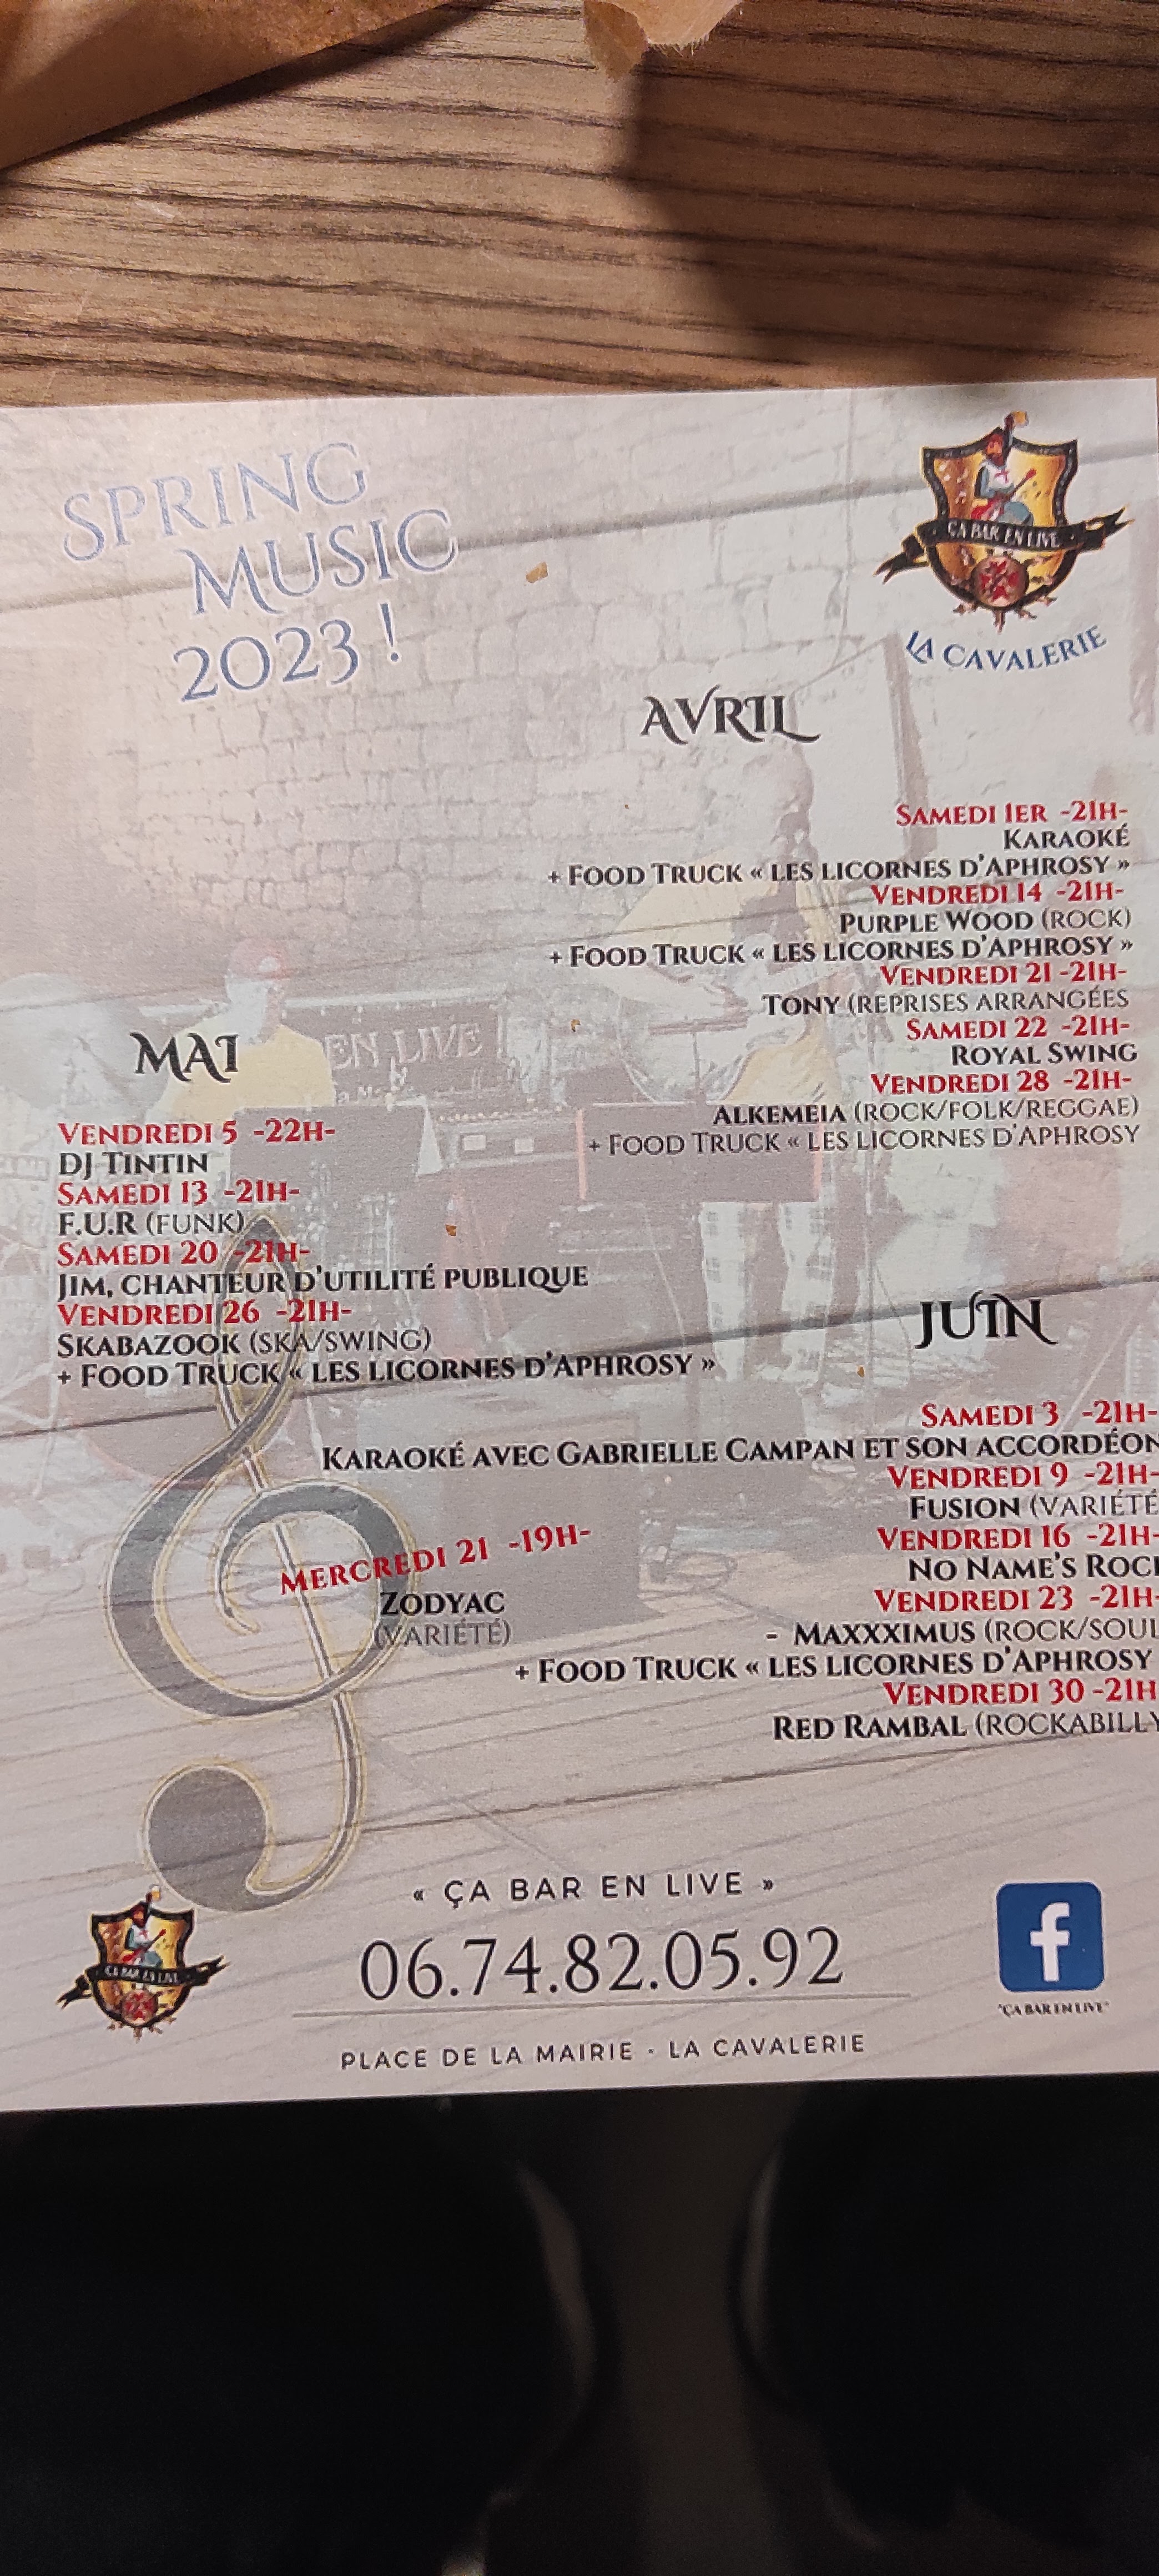 SPRING
MUSIC
2023 !
ÇA BAR EN LIVE
LA CAVALERIE
AVRIL
SAMEDI 1ER -21H-
KARAOKÉ
+ FOOD TRUCK « LES LICORNES D'APHROSY »
VENDREDI 14 -21H-
PURPLE WOOD (ROCK)
+ FOOD TRUCK « LES LICORNES D'APHROSY »
VENDREDI 21 -21H-
TONY (REPRISES ARRANGÉES
SAMEDI 22 -21H-
ROYAL SWING
VENDREDI 28 -21H-
ALKEMEIA (ROCK/FOLK/REGGAE)
+ FOOD TRUCK « LES LICORNES D'APHROSY
EN LIVE
MAI
VENDREDI 5 -22H-
DJ TINTIN
SAMEDI 13 -21H-
F.U.R (FUNK)
SAMEDI 20 -21H-
JIM, CHANTEUR D'UTILITÉ PUBLIQUE
VENDREDI 26 -21H-
SKABAZOOK (SKA/SWING)
+ FOOD TRUCK « LES LICORNES D'APHROSY »
JUIN
SAMEDI 3 -21H-
KARAOKÉ AVEC GABRIELLE CAMPAN ET SON ACCORDÉON
VENDREDI 9 -21H-
FUSION (VARIÉTÉ
VENDREDI 16 -21H-
NO NAME'S ROC
MERCREDI 21 -19H-
ZODYAC
(VARIÉTÉ)
VENDREDI 23 -21H-
- MAXXXIMUS (ROCK/SOUL
+ FOOD TRUCK « LES LICORNES D'APHROSY
VENDREDI 30 -21H
RED RAMBAL (ROCKABILLY
« ÇA BAR EN LIVE »
06.74.82.05.92
PLACE DE LA MAIRIE - LA CAVALERIE
ÇA BAR EN LIVE
f
"ÇA BAR EN LIVE"